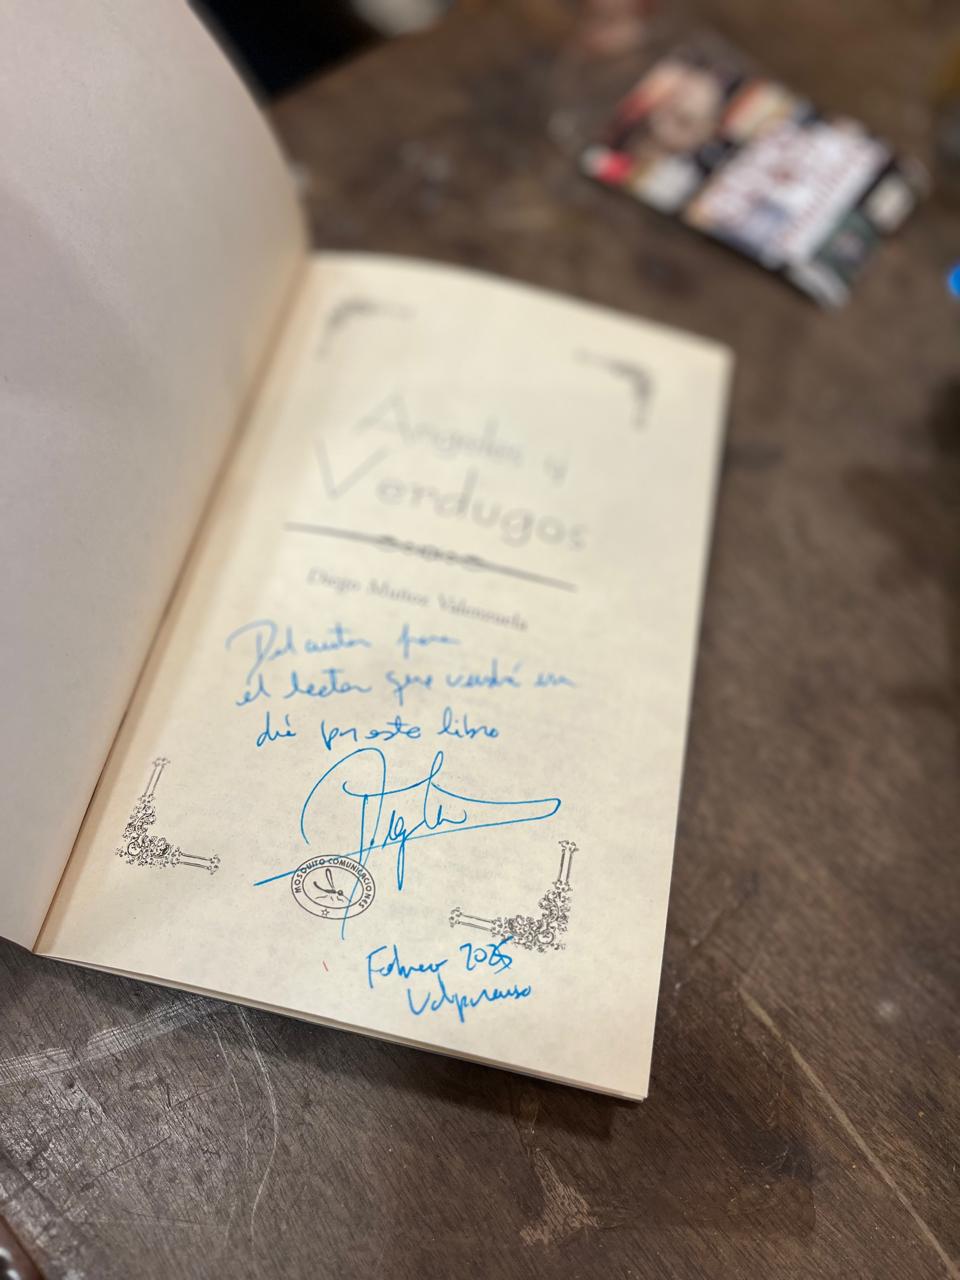 Angeles y
Verdugos
Diego Muñoz Valenzuela
Del autor para
el lector que vendrá un
día por este libro
MOSQUITO COMUNICACIONES
Febrero 2025
Valparaíso